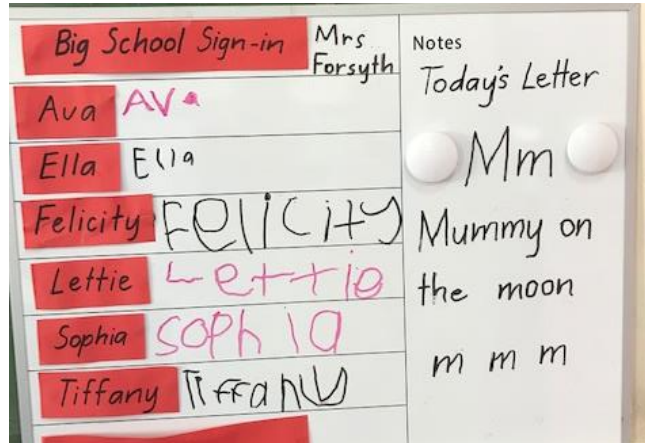 Big School Sign-in Mrs Forsyth
Ava AVa
Ella Ella
Felicity FEliCity
Lettie Lettie
Sophia SOPhia
Tiffany TiffaNy
Notes
Today's Letter
Mm
Mummy on
the moon
m m m